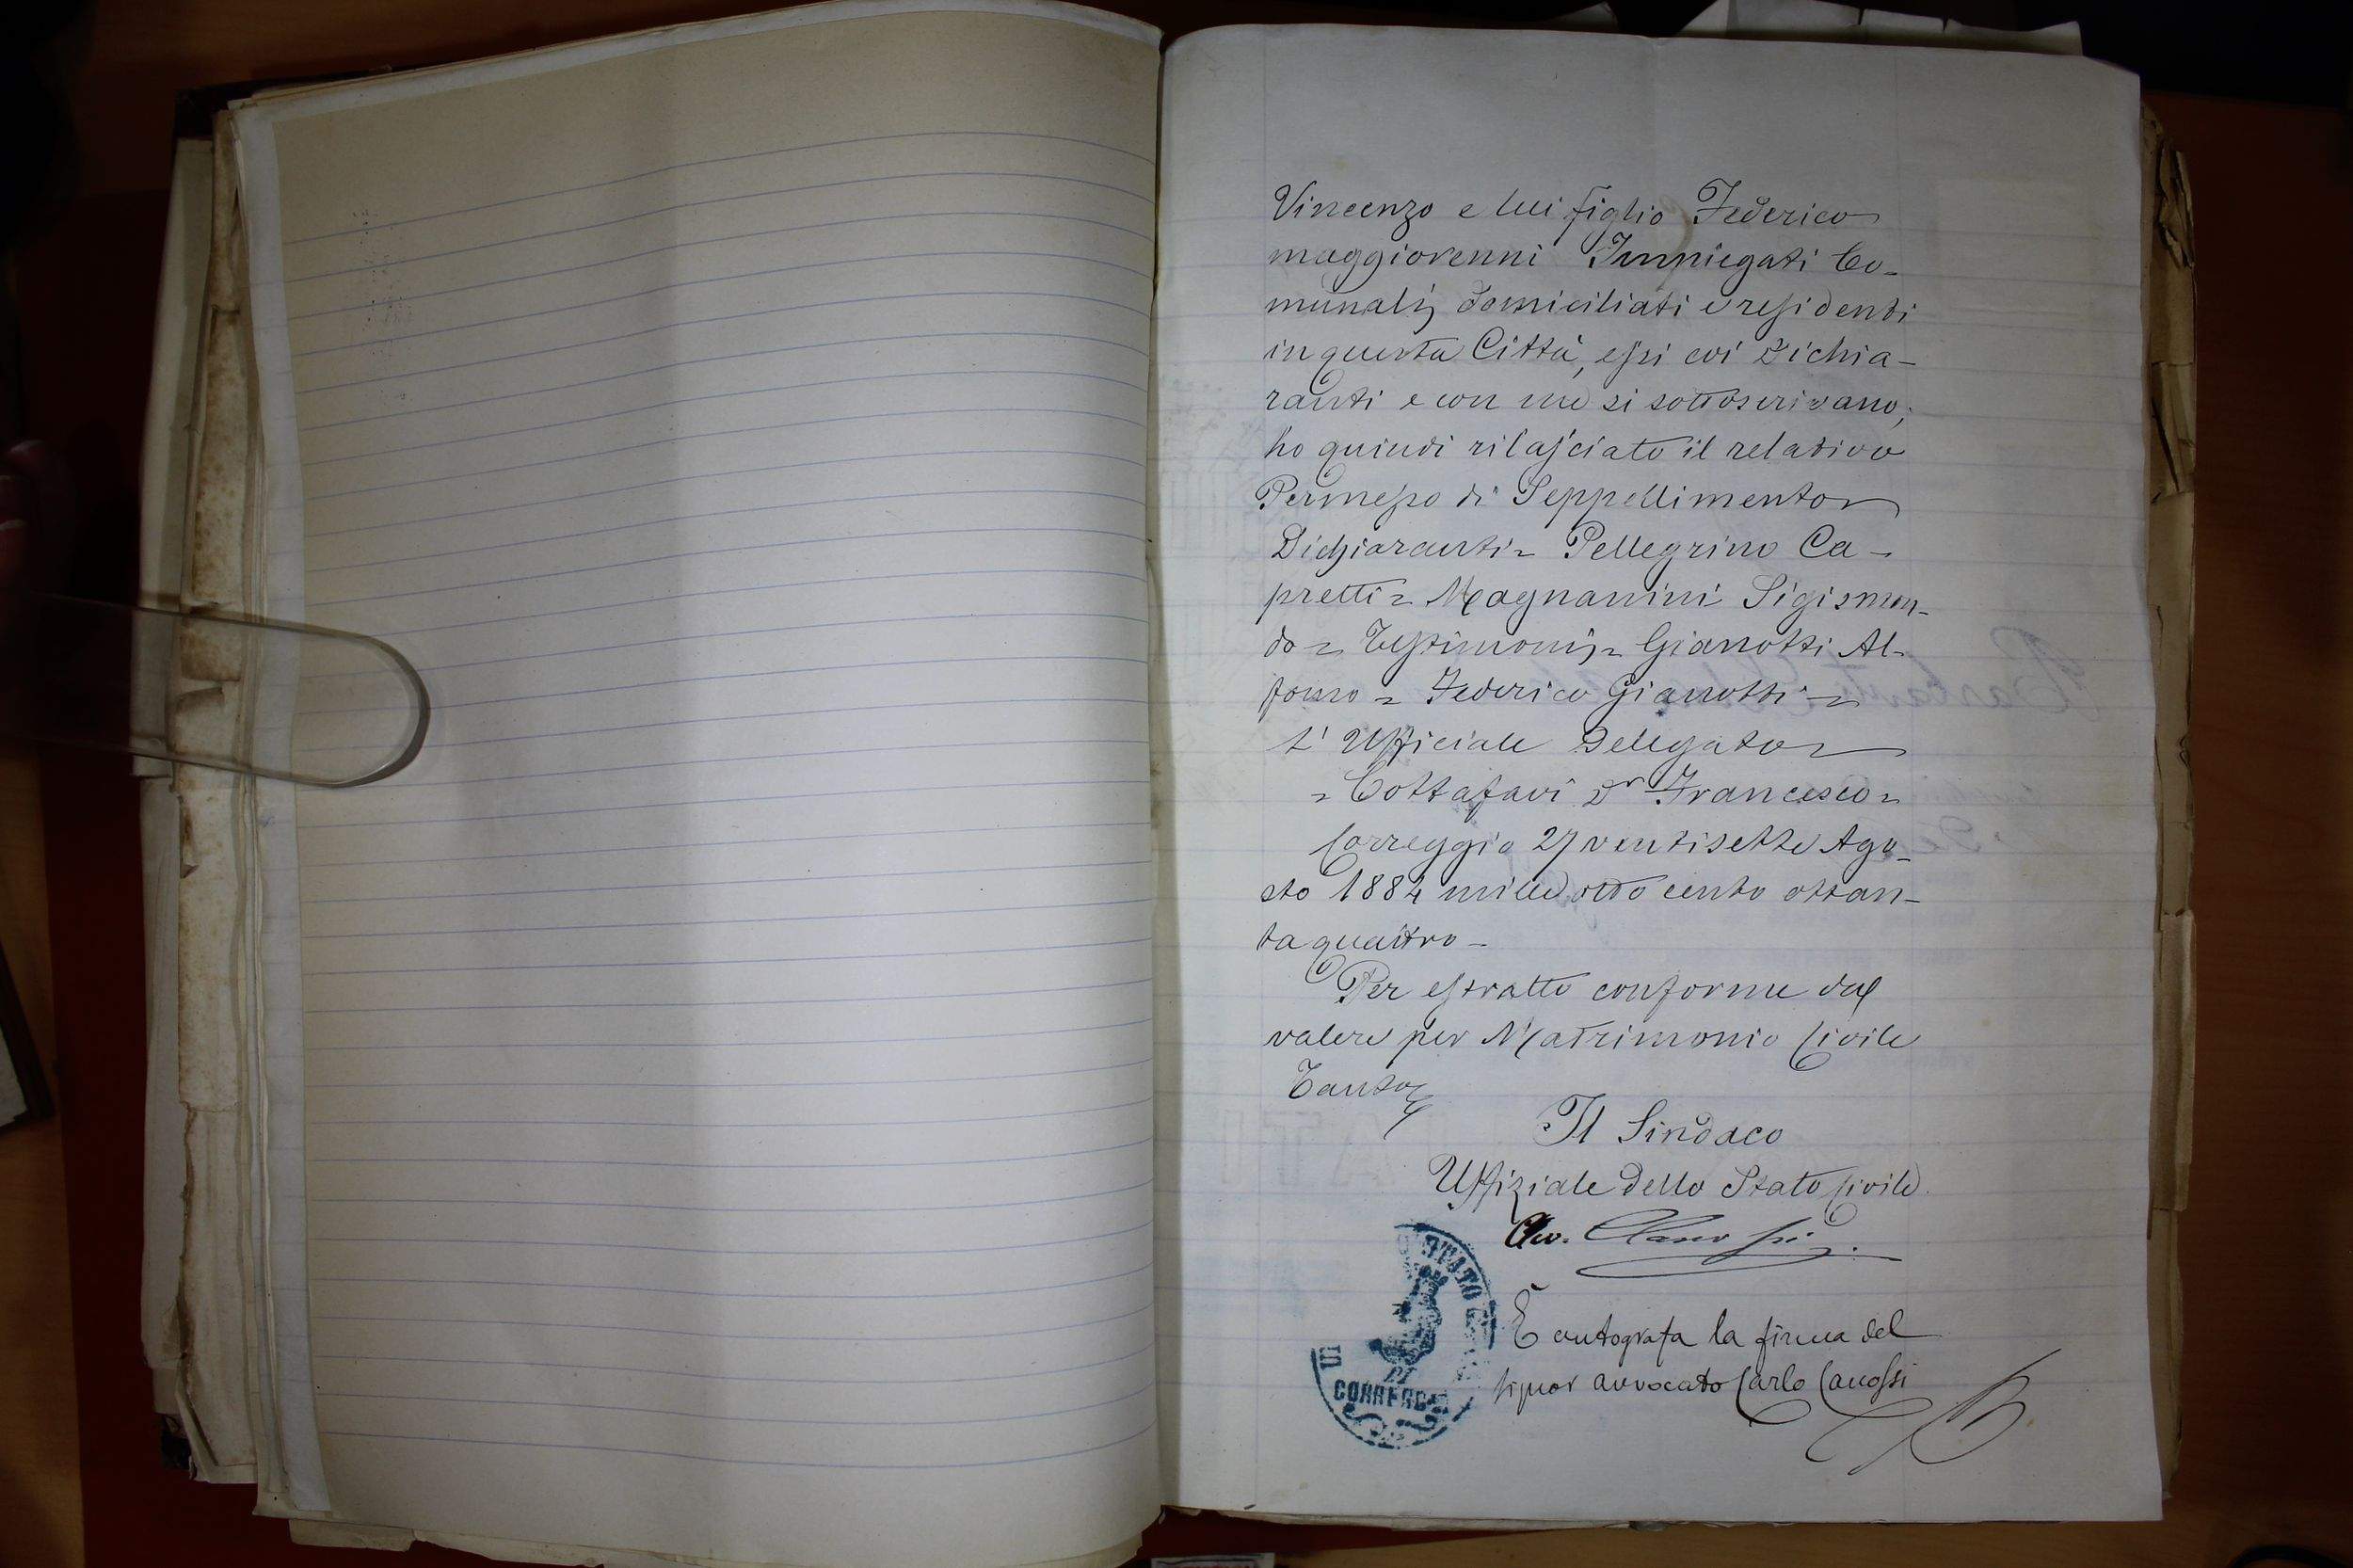 Vincenzo e lui figlio Federico
maggiorenni Impiegati Co-
munali, domiciliati e residenti
in questa Città, essi coi Dichia-
ranti e con me si sottoscrivano;
ho quindi rilasciato il relativo
Permesso di Seppellimento
Dichiaranti = Pellegrino Ca-
pretti = Magnanini Sigismon-
do = Testimonj = Gianotti Al-
fonso = Federico Gianotti =
L'Ufficiale Delegato
= Cottafavi Dr Francesco =
Correggio 27 ventisette Ago-
sto 1884 mille otto cento ottan-
ta quattro -
Per estratto conforme da
valere per Matrimonio Civile
Tanto
Il Sindaco
Uffiziale dello Stato Civile
Avv. Canossi
È autografa la firma del
signor avvocato Carlo Canossi
STATO
DI
CORREGGIO